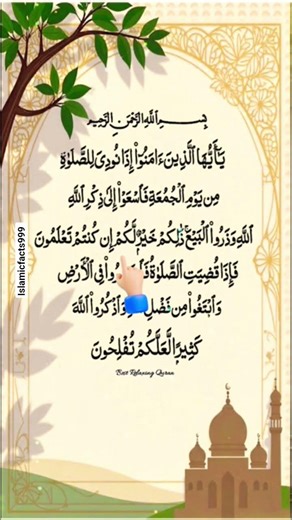 بِسْمِ ٱللَّهِ ٱلرَّحْمَٰنِ ٱلرَّحِيمِ
يَٰٓأَيُّهَا ٱلَّذِينَ ءَامَنُوٓا۟ إِذَا نُودِىَ لِلصَّلَوٰةِ
مِن يَوْمِ ٱلْجُمُعَةِ فَٱسْعَوْا۟ إِلَىٰ ذِكْرِ ٱللَّهِ
ٱللَّهِ وَذَرُوا۟ ٱلْبَيْعَ ۚ ذَٰلِكُمْ خَيْرٌ لَّكُمْ إِن كُنتُمْ تَعْلَمُونَ
فَإِذَا قُضِيَتِ ٱلصَّلَوٰةُ فِى ٱلْأَرْضِ
وَٱبْتَغُوا۟ مِن فَضْلِ وَٱذْكُرُوا۟ ٱللَّهَ
كَثِيرًا لَّعَلَّكُمْ تُفْلِحُونَ
Best Relaxing Quran
Islamicfacts999